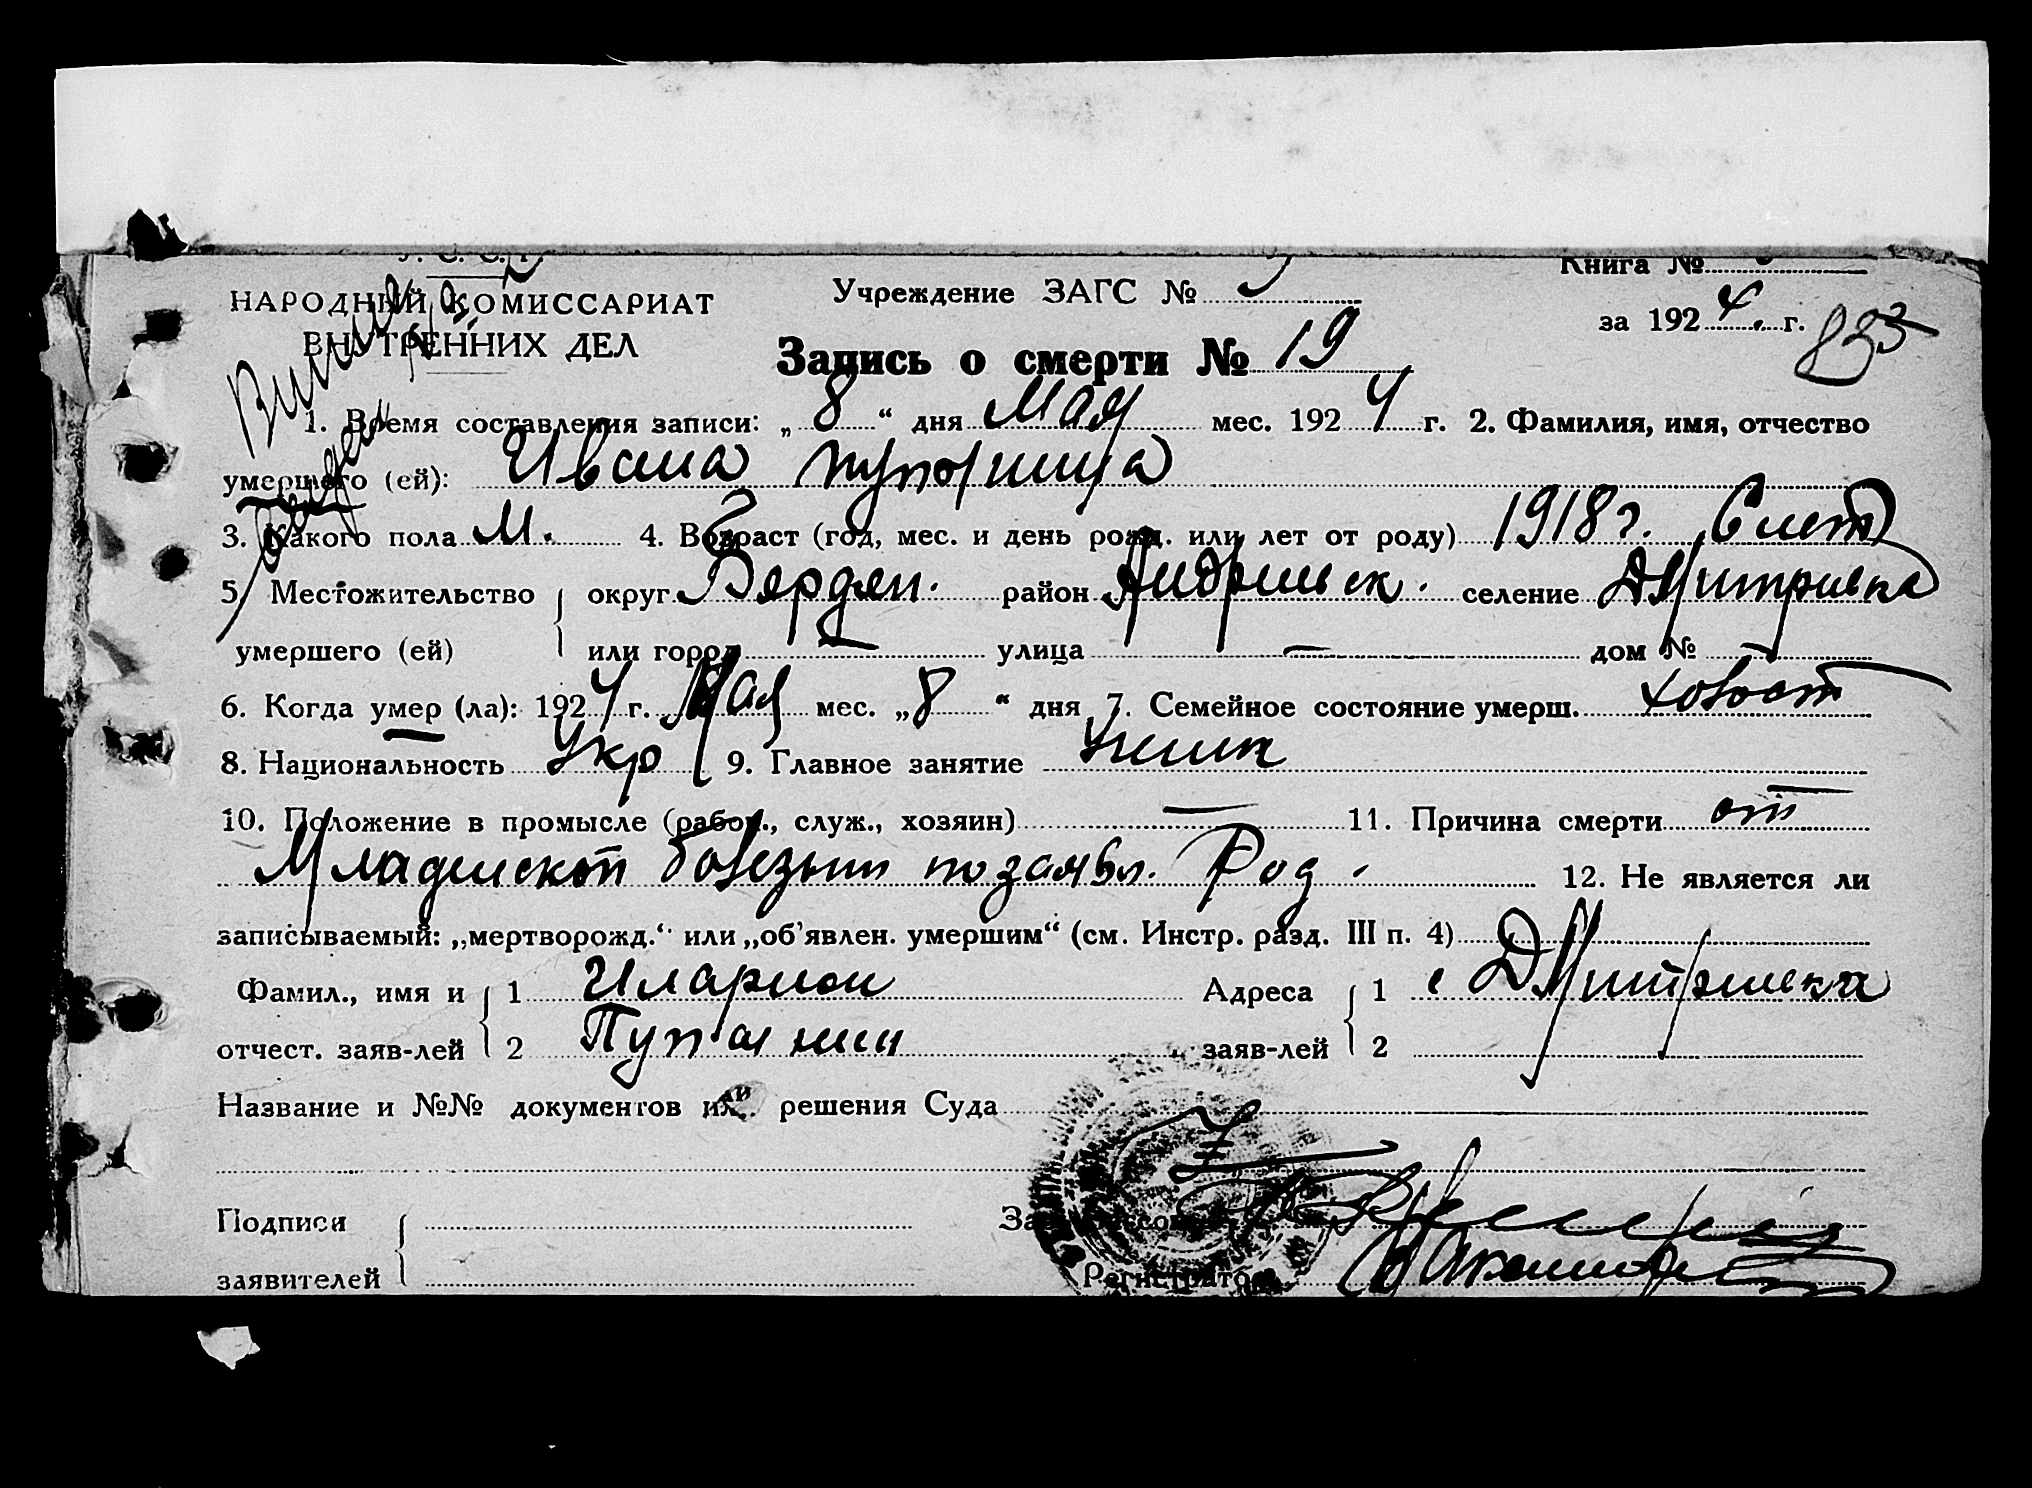 У. С. С. Р.
НАРОДНЫЙ КОМИССАРИАТ
ВНУТРЕННИХ ДЕЛ
Учреждение ЗАГС №
Книга №
за 1924 г.
835
Запись о смерти № 19
1. Время составления записи: „8“ дня Мая мес. 1924 г. 2. Фамилия, имя, отчество
умершего (ей): Ивана
3. Какого пола М. 4. Возраст (год, мес. и день рожд. или лет от роду) 1918 г. 6 лет
5. Местожительство округ Бердян. район Андриевск. селение Дмитривка
умершего (ей) или город — улица — дом № —
6. Когда умер (ла): 1924 г. Мая мес. „8“ дня 7. Семейное состояние умерш. холост
8. Национальность Укр 9. Главное занятие
10. Положение в промысле (рабоч., служ., хозяин) — 11. Причина смерти от
Младенской болезни по заявл. Род. 12. Не является ли
записываемый: „мертворожд.“ или „об'явлен. умершим“ (см. Инстр. разд. III п. 4)
Фамил., имя и 1 Иларион Адреса 1 с Дмитривка
отчест. заяв-лей 2 заяв-лей 2
Название и №№ документов или решения Суда
Подписи
заявителей
Регистратор